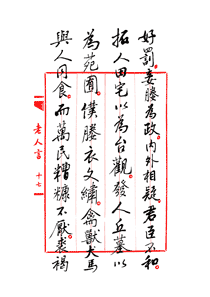 好罰妾媵為政內外相疑君臣不和
拓人田宅以為台觀發人丘墓以
為苑囿僕媵衣文繡禽獸犬馬
與人同食而萬民糟糠不厭裘褐
老人言 十七